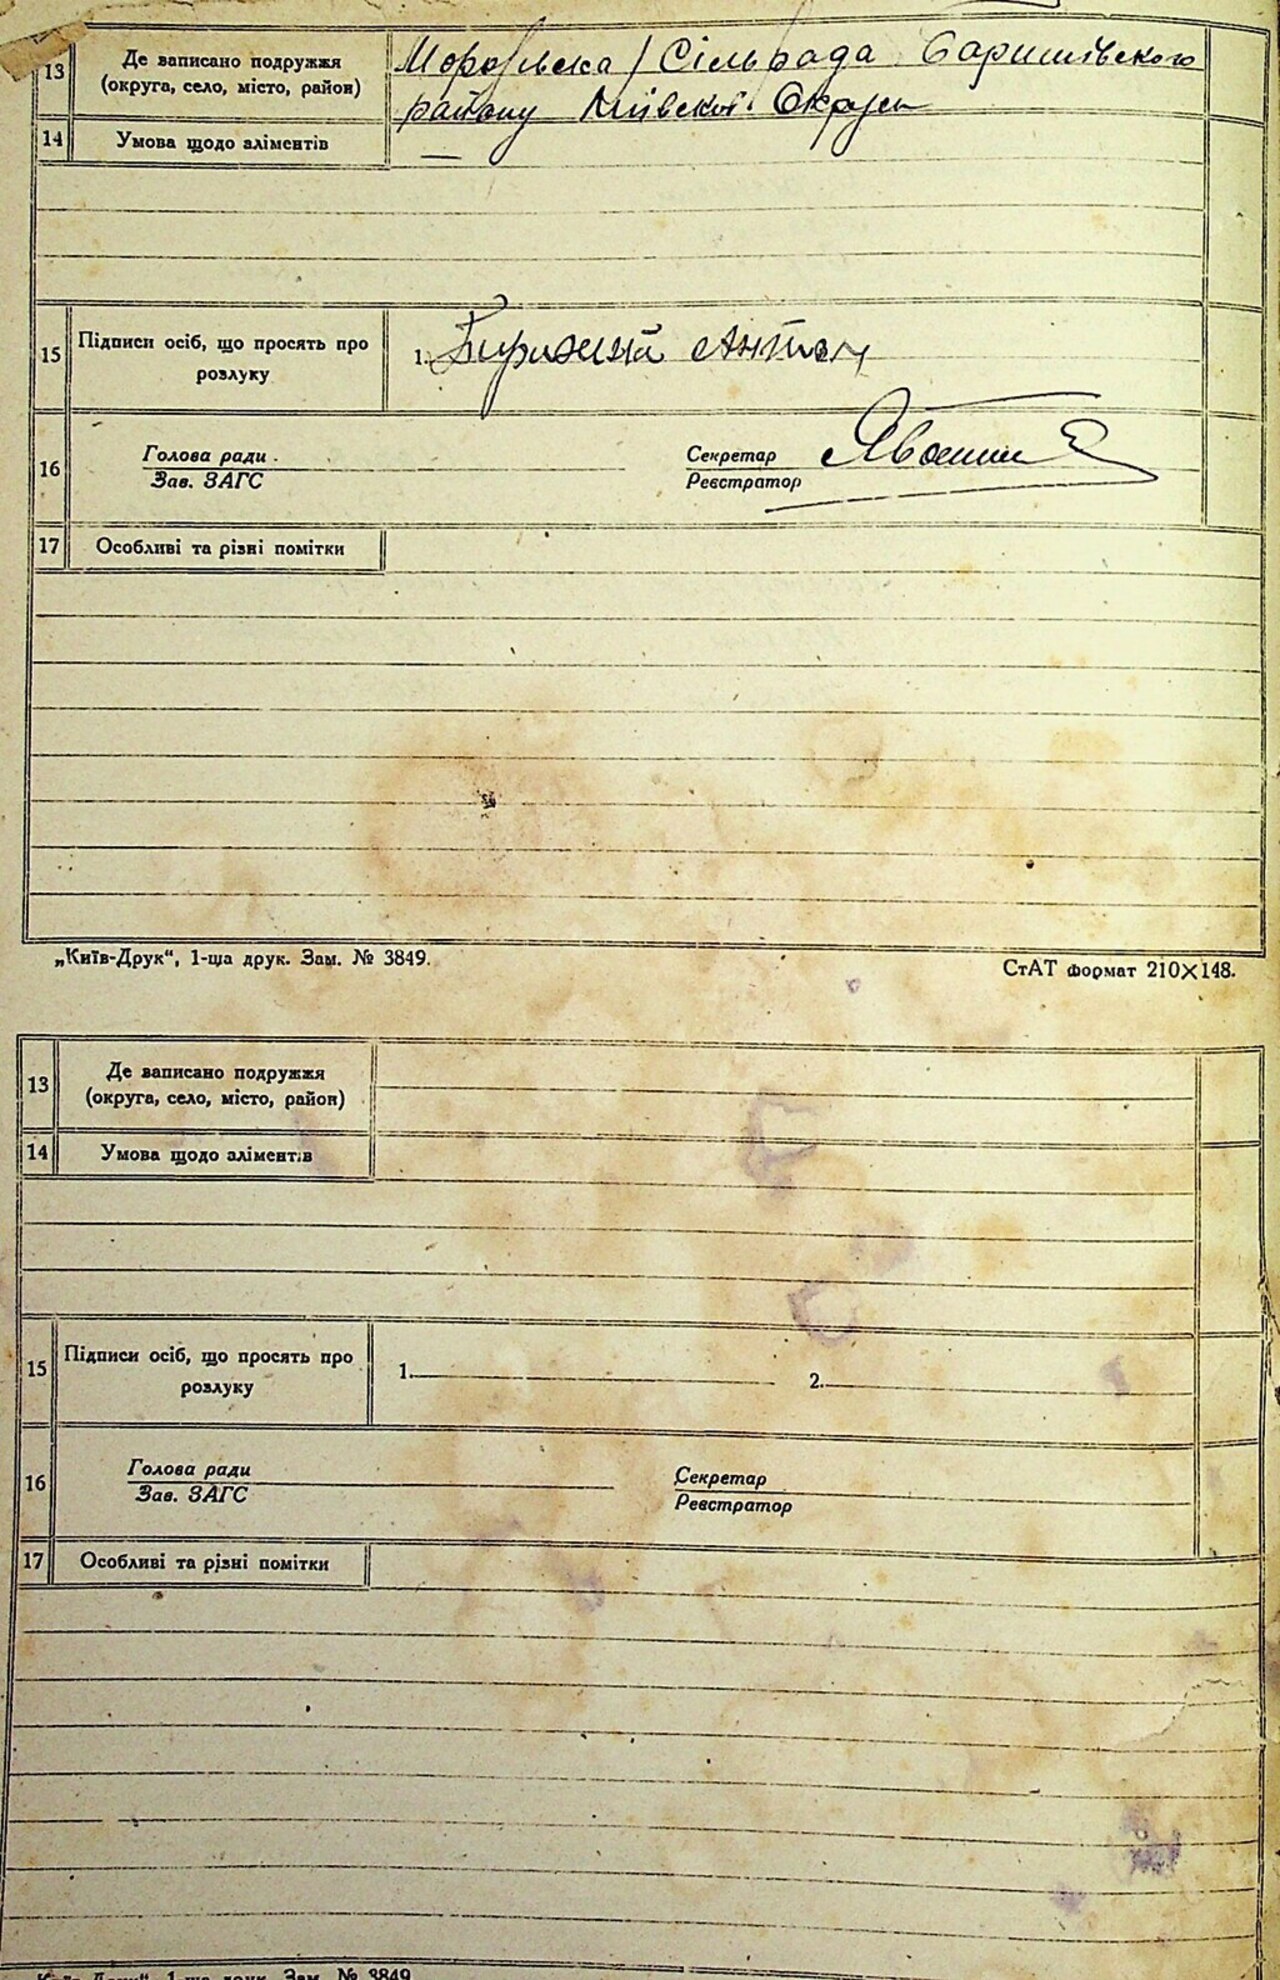 13 Де записано подружжя
(округа, село, місто, район)
Сільрада Баришівського
району Київської Округи
14 Умова щодо аліментів —
15 Підписи осіб, що просять про
розлуку
1. Антон
16 Голова ради Секретар
Зав. ЗАГС Реєстратор
17 Особливі та різні помітки
„Київ-Друк“, 1-ша друк. Зам. № 3849. СтАТ формат 210×148.
13 Де записано подружжя
(округа, село, місто, район)
14 Умова щодо аліментів
15 Підписи осіб, що просять про
розлуку
1. 2.
16 Голова ради Секретар
Зав. ЗАГС Реєстратор
17 Особливі та різні помітки
„Київ-Друк“, 1-ша друк. Зам. № 3849